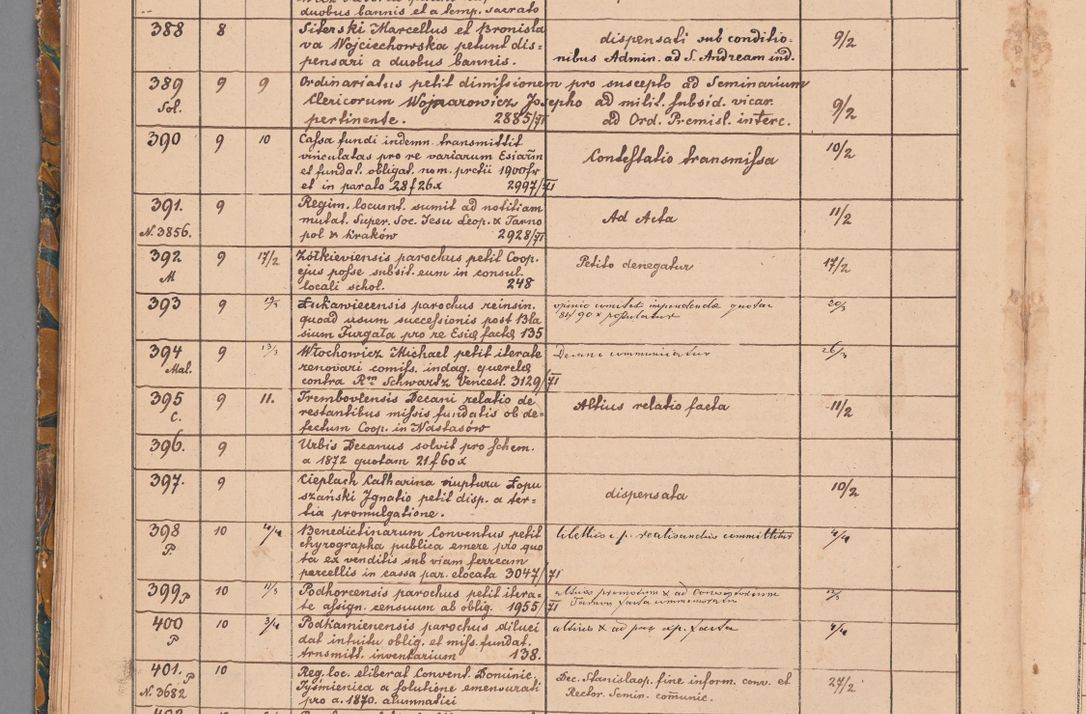 duobus bannis et a temp. sacrato
388 8 Siterski Marcellus et Bronisla
va Wojciechowska petunt dis=
pensari a duobus bannis.
dispensati sub conditio-
nibus Admin. ad S. Andream ind.
9/2
389 9 9 Ordinariatus petit dimissionem pro suscepto ad Seminarium
Sol. Clericorum Wojnarowicz Josepho ad milit. subsid. vicar.
pertinente. 2885/71 ad Ord. Premisl. interc.
9/2
390 9 10 Cassa fundi indemn. transmittit
vinculatas pro re variarum Esiarum
et fundat. obligat. nom. pretii 1900fr
et in parato 28f26x 2997/71
Contestatio transmissa
10/2
391. 9 Regim. locumt. sumit ad notitiam
N. 3856. mutat. Super. Soc. Jesu Leop. & Tarno
pol & Kraków 2928/71
Ad Acta
11/2
392 9 17/2 Zołkieviensis parochus petit Coop.
M ejus posse subsit. eum in consul.
locali schol. 248
Petito denegatur
17/2
393 9 Łukawiecensis parochus reinsin.
quoad usum successionis post Bla
sium Furgała pro re Esiæ factæ 135
394 9 13/3 Włochowicz Michael petit iterate
Mal. renovari comiss. indag. querelæ
contra Rm Schwartz Vencesl. 3129/71
Decano communicatur
26/3
395 9 11. Trembovlensis Decani relatio de
C. restantibus missis fundatis ob de=
fectum Coop. in Nastasów
Altius relatio facta
11/2
396. 9 Urbis Decanus solvit pro schem.
a 1872 quotam 21f60x
397. 9 Cieplach Catharina nuptura Łopu
szański Ignatio petit disp. a ter=
tia promulgatione.
dispensata
10/2
398 10 4/4 Benedictinarum Conventus petit
P. chyrographa publica emere pro quo
ta ex venditis sub viam ferream
parcellis in cassa par. elocata 3047/71
4/4
399 P 10 Podhorcensis parochus petit itera-
te assign. censuum ab oblig. 1955/71
400 10 3/4 Podkamienensis parochus diluci
P dat intuitu oblig. et miss. fundat.
trnsmitt. inventarium 138.
4/4
401. P 10 Reg. loc. eliberat Convent. Dominic.
N. 3682 Tyśmienica a solutione emensurati
pro a. 1870. alumnatici
Dec. Stanislaop. fine inform. conv. et
Rector. Semin. comunic.
27/2